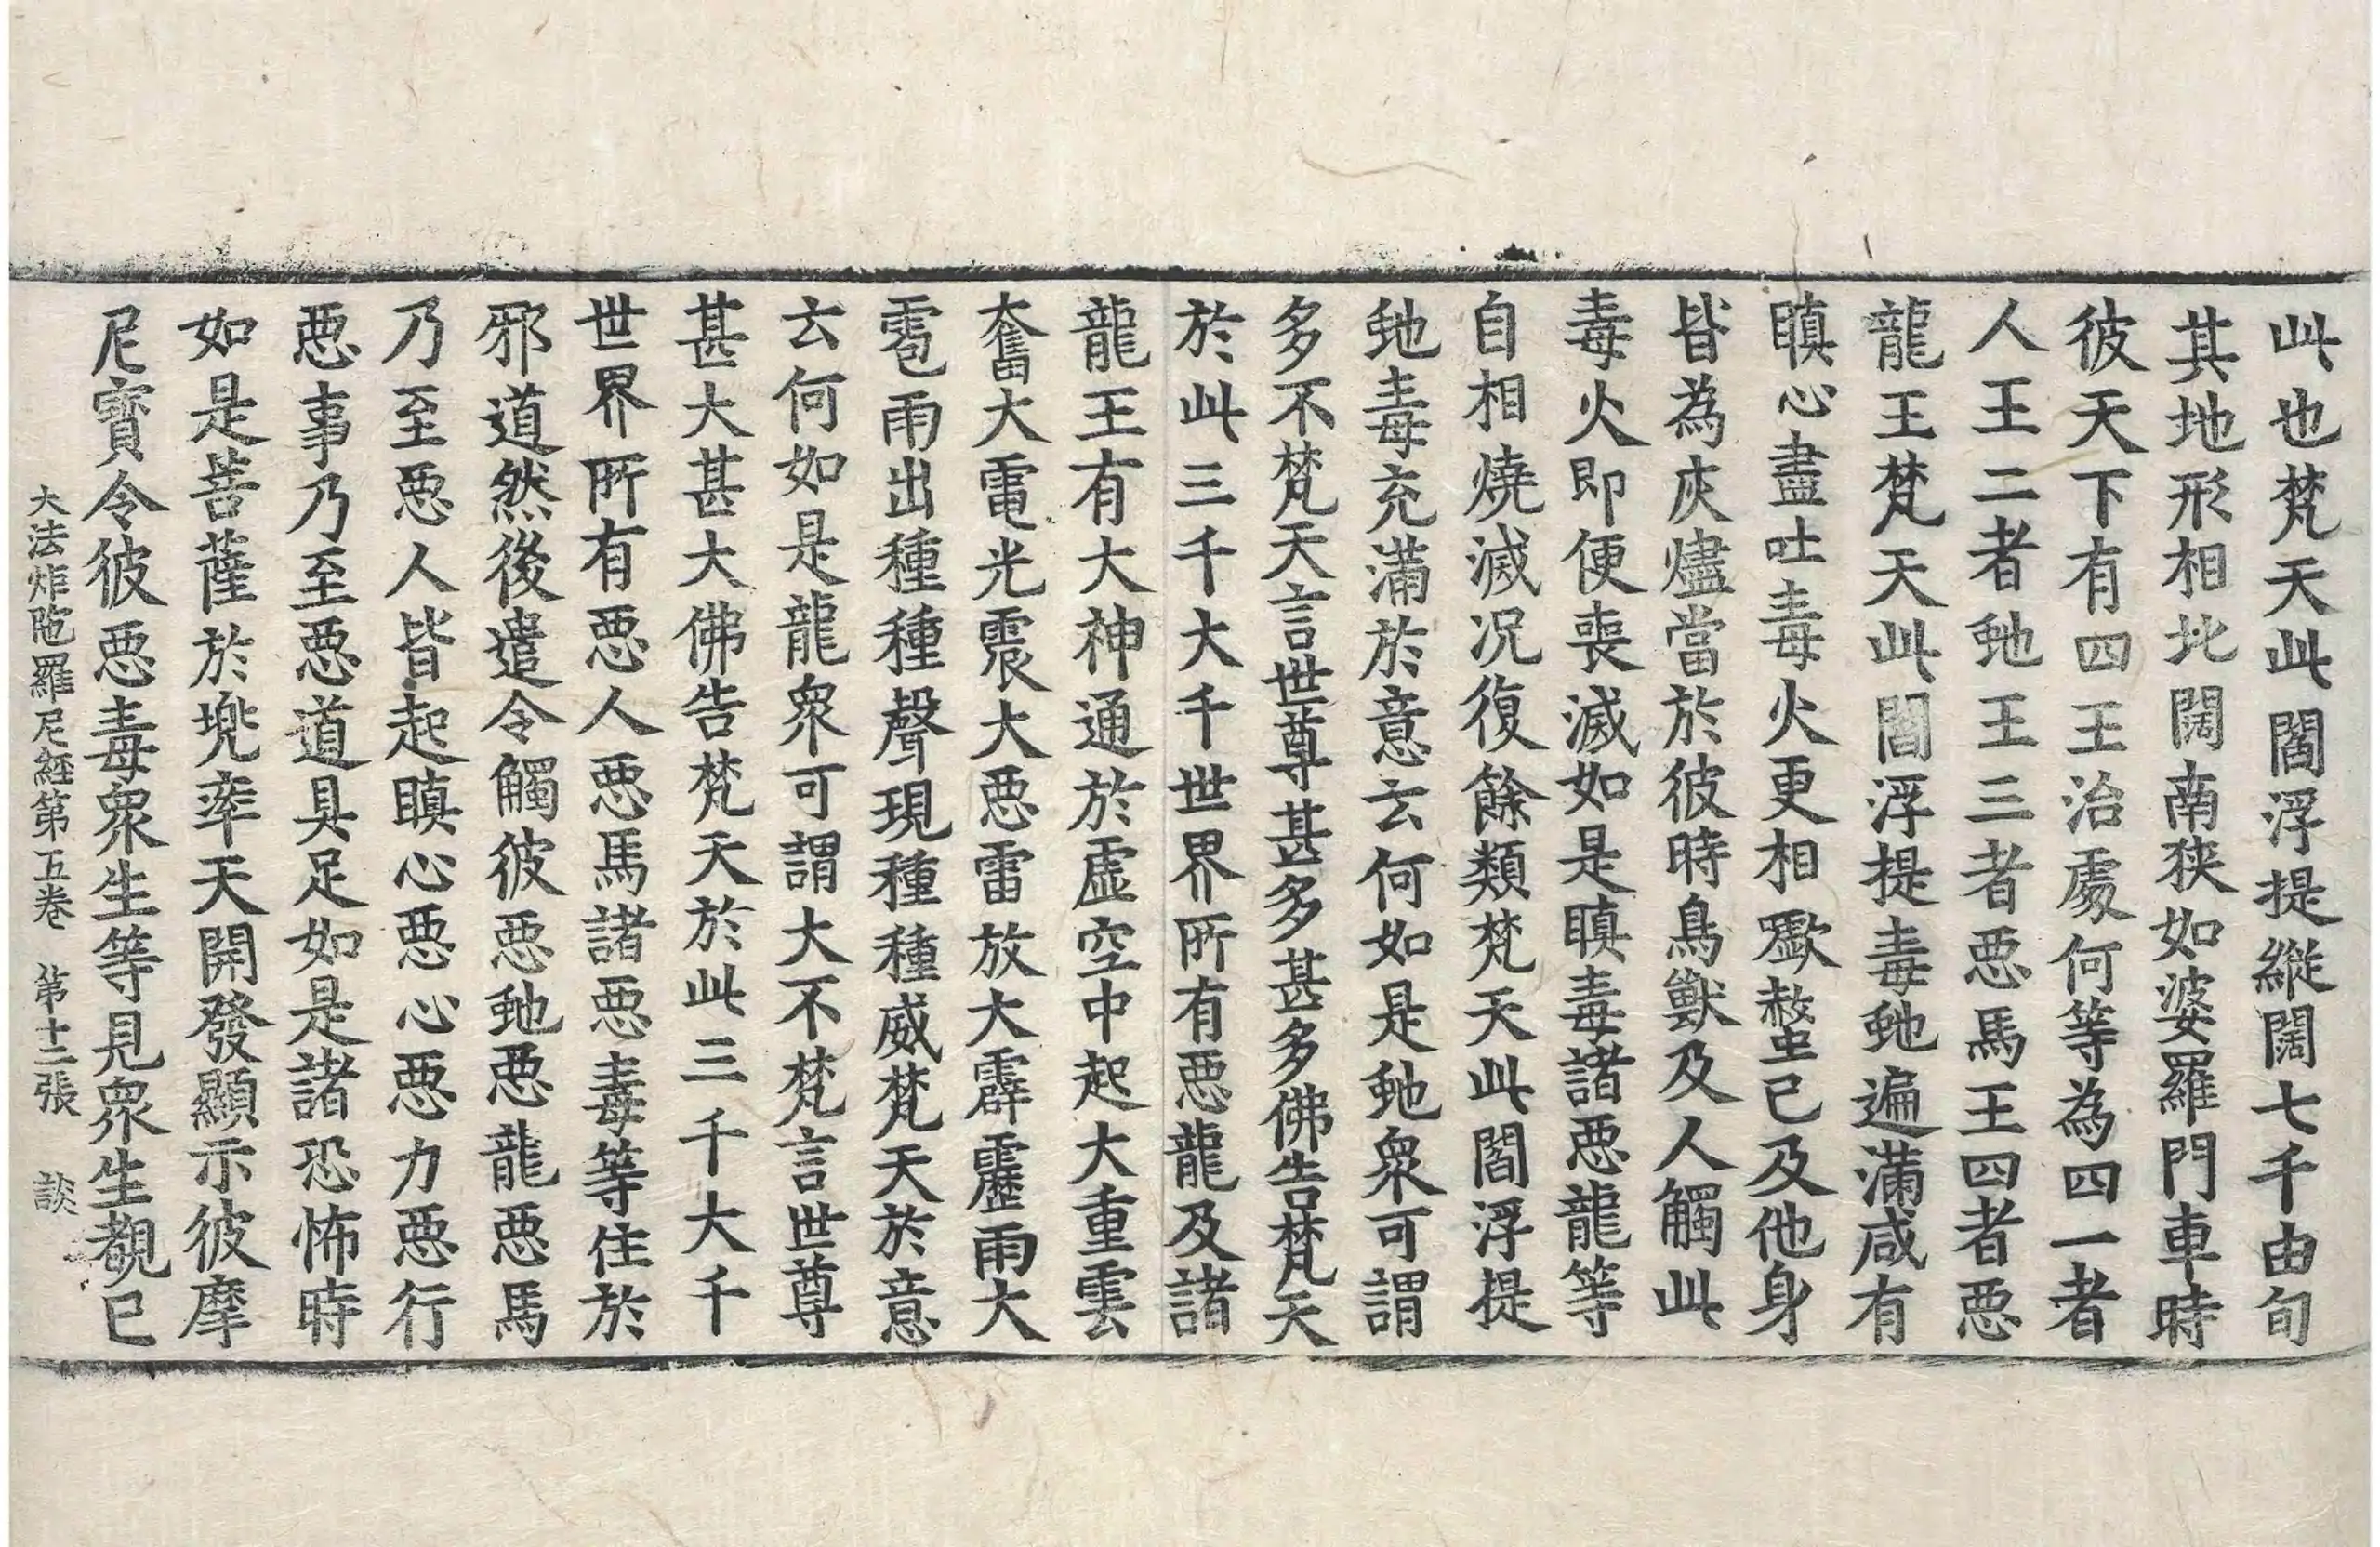 此也梵天此閻浮提縱闊七千由旬
其地形相北闊南狹如婆羅門車時
彼天下有四王治處何等為四一者
人王二者虵王三者惡馬王四者惡
龍王梵天此閻浮提毒虵遍滿咸有
瞋心盡吐毒火更相齧螫已及他身
皆為灰燼當於彼時鳥獸及人觸此
毒火即便喪滅如是瞋毒諸惡龍等
自相燒滅況復餘類梵天此閻浮提
虵毒充滿於意云何如是虵眾可謂
多不梵天言世尊甚多甚多佛告梵天
於此三千大千世界所有惡龍及諸
龍王有大神通於虛空中起大重雲
奮大電光震大惡雷放大霹靂雨大
雹雨出種種聲現種種威梵天於意
云何如是龍眾可謂大不梵言世尊
甚大甚大佛告梵天於此三千大千
世界所有惡人惡馬諸惡毒等住於
邪道然後遣令觸彼惡虵惡龍惡馬
乃至惡人皆起瞋心惡心惡力惡行
惡事乃至惡道具足如是諸恐怖時
如是菩薩於兜率天開發顯示彼摩
尼寶令彼惡毒眾生等見眾生覩已
大法炬陁羅尼經第五卷 第十二張 談